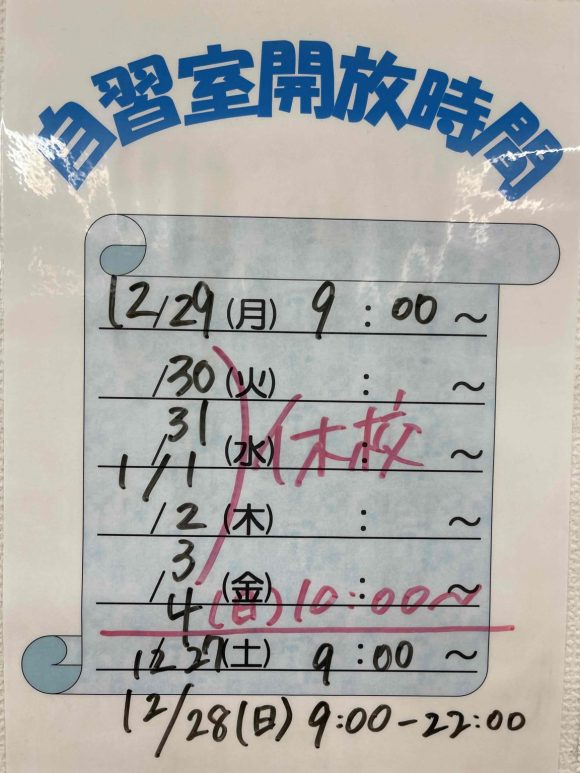 自習室開放時間
12/29(月) 9:00~
/30(火) : ~
31
/ (水) : ~ 休校
1/1
/2(木) : ~
3
/ (金) : ~
4(日)10:00~
12/27(土) 9:00 ~
12/28(日) 9:00-22:00